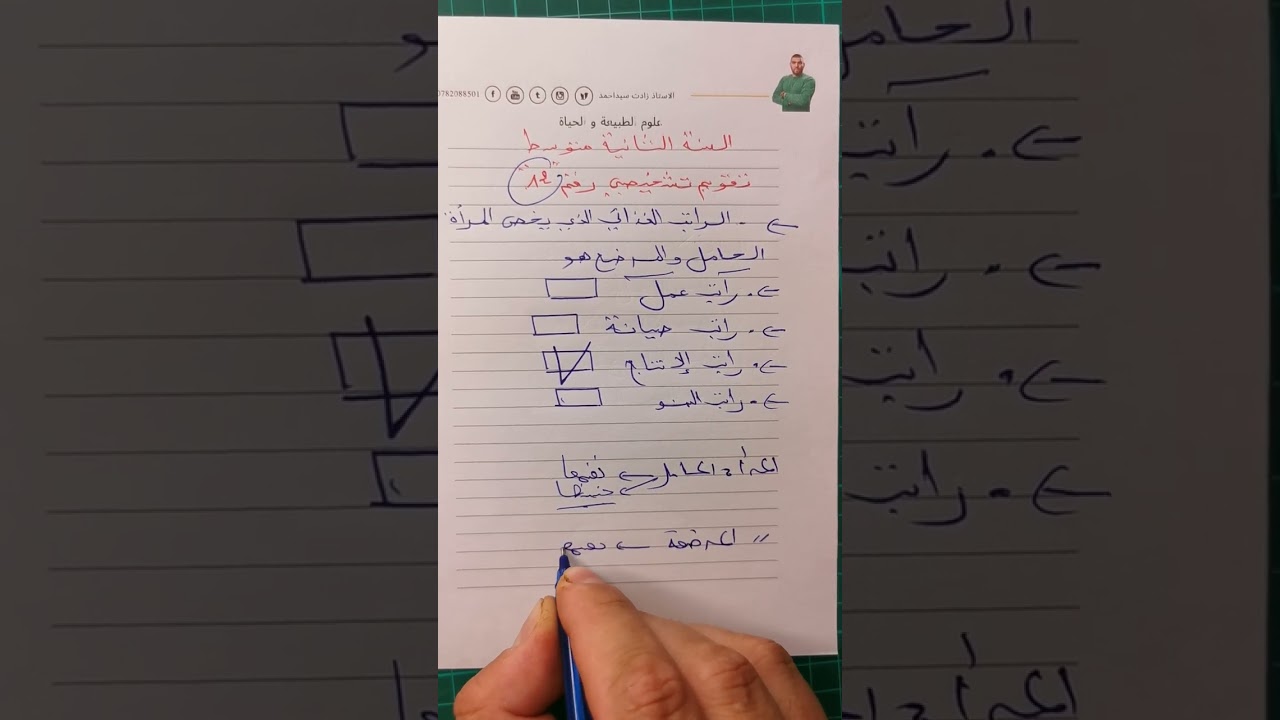 الاستاذ زادت سيداحمد 0782088501
علوم الطبيعة و الحياة
السنة الثانية متوسط
تقويم تشخيصي رقم "12"
- الراتب الغذائي الذي يخص المرأة
الحامل والمرضع هو
- راتب عمل
- راتب صيانة
- راتب الإنتاج
- راتب النمو
المرأة الحامل نفسها
جنينها
" المرضعة نفسها